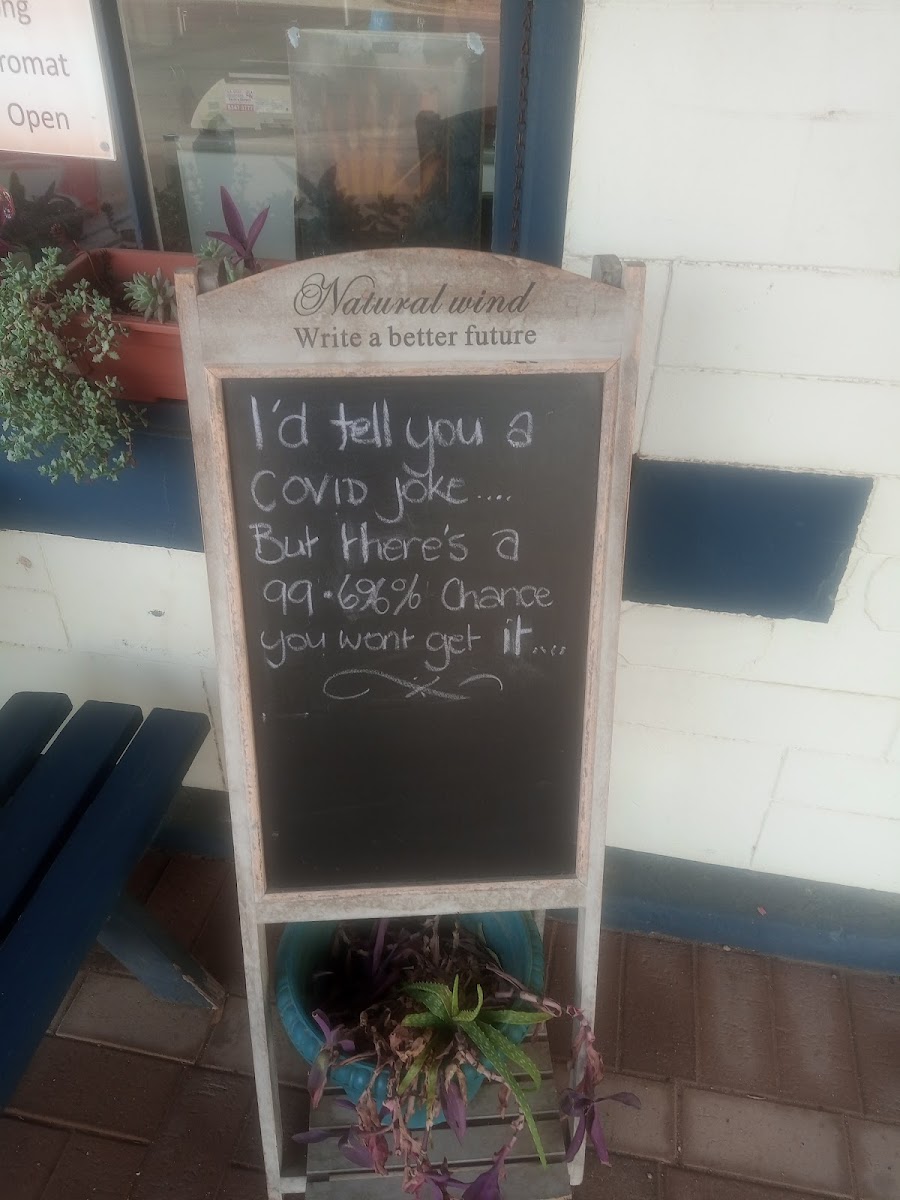 ng
romat
Open
Natural wind
Write a better future
I'd tell you a
COVID joke.....
But there's a
99.696% Chance
you wont get it.....